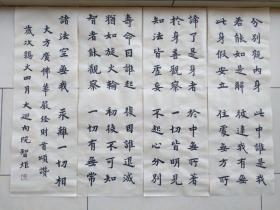 分別觀內身 此中誰是我
若能如是解 彼達我有無
此身假安立 住處無方所
諦了是身者 於中無所著
於身善觀察 一切皆明見
知法皆虛妄 不起心分別
壽命因誰起 復因誰退滅
猶如旋火輪 初後不可知
智者能觀察 一切有無常
諸法空無我 永離一切相
大方廣佛華嚴經財首頌讚
歲次 四月 內院智